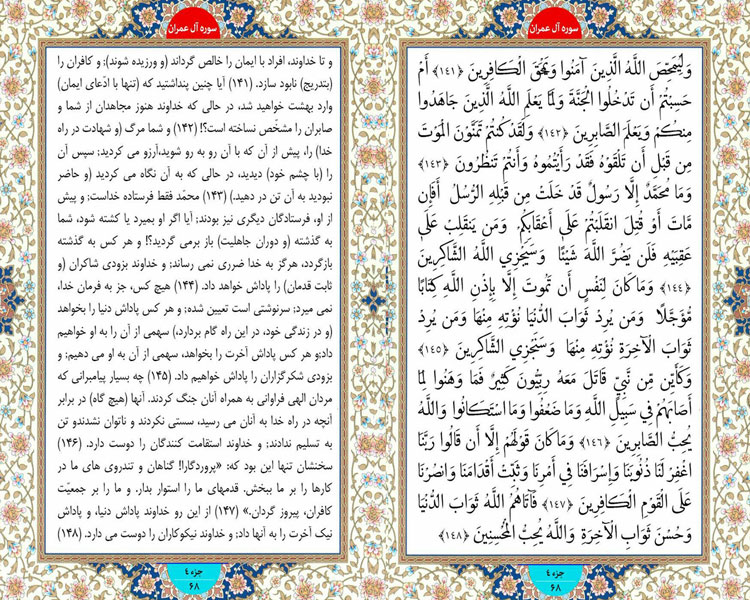 سوره آل عمران
وَلِيُمَحِّصَ اللَّهُ الَّذِينَ آمَنُوا وَيَمْحَقَ الْكَافِرِينَ ﴿۱۴۱﴾ أَمْ
حَسِبْتُمْ أَن تَدْخُلُوا الْجَنَّةَ وَلَمَّا يَعْلَمِ اللَّهُ الَّذِينَ جَاهَدُوا
مِنكُمْ وَيَعْلَمَ الصَّابِرِينَ ﴿۱۴۲﴾ وَلَقَدْ كُنتُمْ تَمَنَّوْنَ الْمَوْتَ
مِن قَبْلِ أَن تَلْقَوْهُ فَقَدْ رَأَيْتُمُوهُ وَأَنتُمْ تَنظُرُونَ ﴿۱۴۳﴾
وَمَا مُحَمَّدٌ إِلَّا رَسُولٌ قَدْ خَلَتْ مِن قَبْلِهِ الرُّسُلُ أَفَإِن
مَّاتَ أَوْ قُتِلَ انقَلَبْتُمْ عَلَى أَعْقَابِكُمْ وَمَن يَنقَلِبْ عَلَى
عَقِبَيْهِ فَلَن يَضُرَّ اللَّهَ شَيْئًا وَسَيَجْزِي اللَّهُ الشَّاكِرِينَ
﴿۱۴۴﴾ وَمَا كَانَ لِنَفْسٍ أَنْ تَمُوتَ إِلَّا بِإِذْنِ اللَّهِ كِتَابًا
مُّؤَجَّلًا وَمَن يُرِدْ ثَوَابَ الدُّنْيَا نُؤْتِهِ مِنْهَا وَمَن يُرِدْ
ثَوَابَ الْآخِرَةِ نُؤْتِهِ مِنْهَا وَسَنَجْزِي الشَّاكِرِينَ ﴿۱۴۵﴾
وَكَأَيِّن مِّن نَّبِيٍّ قَاتَلَ مَعَهُ رِبِّيُّونَ كَثِيرٌ فَمَا وَهَنُوا لِمَا
أَصَابَهُمْ فِي سَبِيلِ اللَّهِ وَمَا ضَعُفُوا وَمَا اسْتَكَانُوا وَاللَّهُ
يُحِبُّ الصَّابِرِينَ ﴿۱۴۶﴾ وَمَا كَانَ قَوْلَهُمْ إِلَّا أَن قَالُوا رَبَّنَا
اغْفِرْ لَنَا ذُنُوبَنَا وَإِسْرَافَنَا فِي أَمْرِنَا وَثَبِّتْ أَقْدَامَنَا وَانصُرْنَا
عَلَى الْقَوْمِ الْكَافِرِينَ ﴿۱۴۷﴾ فَآتَاهُمُ اللَّهُ ثَوَابَ الدُّنْيَا
وَحُسْنَ ثَوَابِ الْآخِرَةِ وَاللَّهُ يُحِبُّ الْمُحْسِنِينَ ﴿۱۴۸﴾
جزء ٤
۶۸
سوره آل عمران
و تا خداوند، افراد با ایمان را خالص گرداند (و ورزیده شوند)؛ و کافران را
(بتدریج) نابود سازد. (۱۴۱) آیا چنین پنداشتید که (تنها با ادّعای ایمان)
وارد بهشت خواهید شد، در حالی که خداوند هنوز مجاهدان از شما و
صابران را مشخّص نساخته است؟! (۱۴۲) و شما مرگ (و شهادت در راه
خدا) را، پیش از آن که با آن رو به رو شوید،آرزو می کردید؛ سپس آن
را (با چشم خود) دیدید، در حالی که به آن نگاه می کردید (و حاضر
نبودید به آن تن در دهید.) (۱۴۳) محمّد فقط فرستاده خداست؛ و پیش
از او، فرستادگان دیگری نیز بودند؛ آیا اگر او بمیرد یا کشته شود، شما
به گذشته (و دوران جاهلیت) باز برمی گردید؟! و هر کس به گذشته
بازگردد، هرگز به خدا ضرری نمی رساند؛ و خداوند بزودی شاکران (و
ثابت قدمان) را پاداش خواهد داد. (۱۴۴) هیچ کس، جز به فرمان خدا،
نمی میرد؛ سرنوشتی است تعیین شده؛ و هر کس پاداش دنیا را بخواهد
(و در زندگی خود، در این راه گام بردارد،) سهمی از آن را به او خواهیم
داد؛و هر کس پاداش آخرت را بخواهد، سهمی از آن به او می دهیم؛ و
بزودی شکرگزاران را پاداش خواهیم داد. (۱۴۵) چه بسیار پیامبرانی که
مردان الهی فراوانی به همراه آنان جنگ کردند. آنها (هیچ گاه) در برابر
آنچه در راه خدا به آنان می رسید، سستی نکردند و ناتوان نشدندو تن
به تسلیم ندادند؛ و خداوند استقامت کنندگان را دوست دارد. (۱۴۶)
سخنشان تنها این بود که: «پروردگارا! گناهان و تندروی های ما در
کارها را بر ما ببخش. قدمهای ما را استوار بدار. و ما را بر جمعیّت
کافران، پیروز گردان.» (۱۴۷) از این رو خداوند پاداش دنیا، و پاداش
نیک آخرت را به آنها داد؛ و خداوند نیکوکاران را دوست می دارد. (۱۴۸)
جزء ٤
۶۸